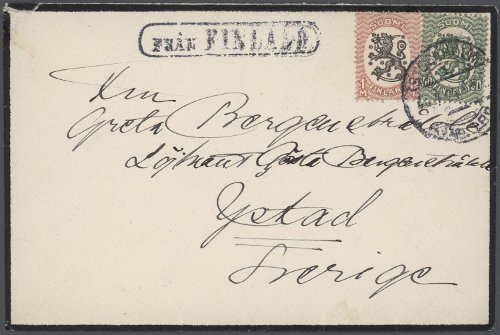 FRÅN FINLALD
SUOMI SUOMI
1 M FINLAND
Greta Bergenstråhle
Löjtnant Gösta Bergenstråhle
Ystad
Sverige